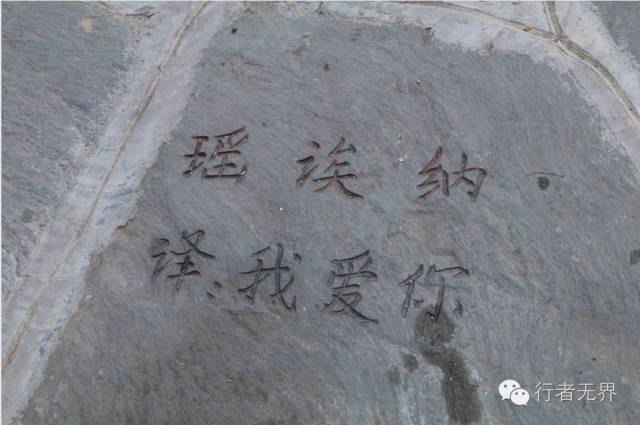 瑶诶纳
译:我爱你
行者无界